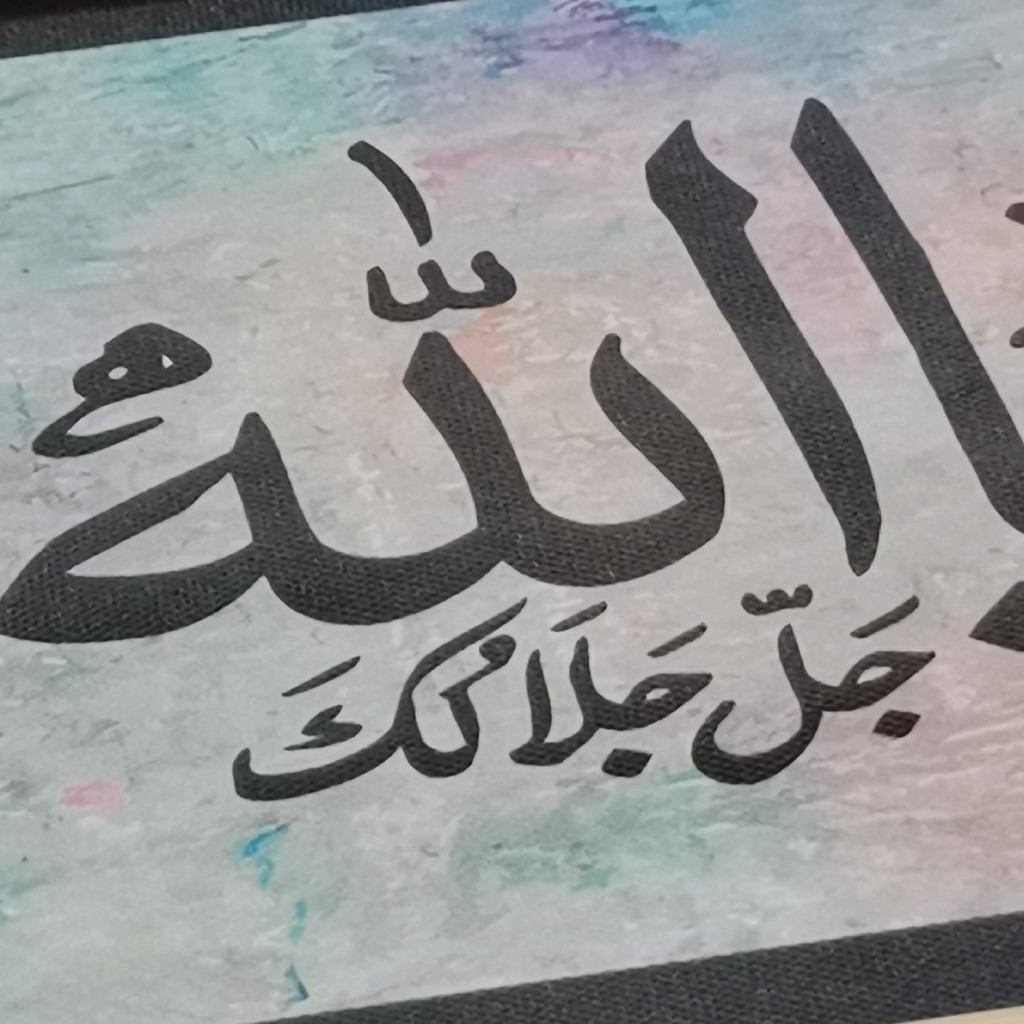 يا اللّٰهُ
جَلّ جَلَالُكَ